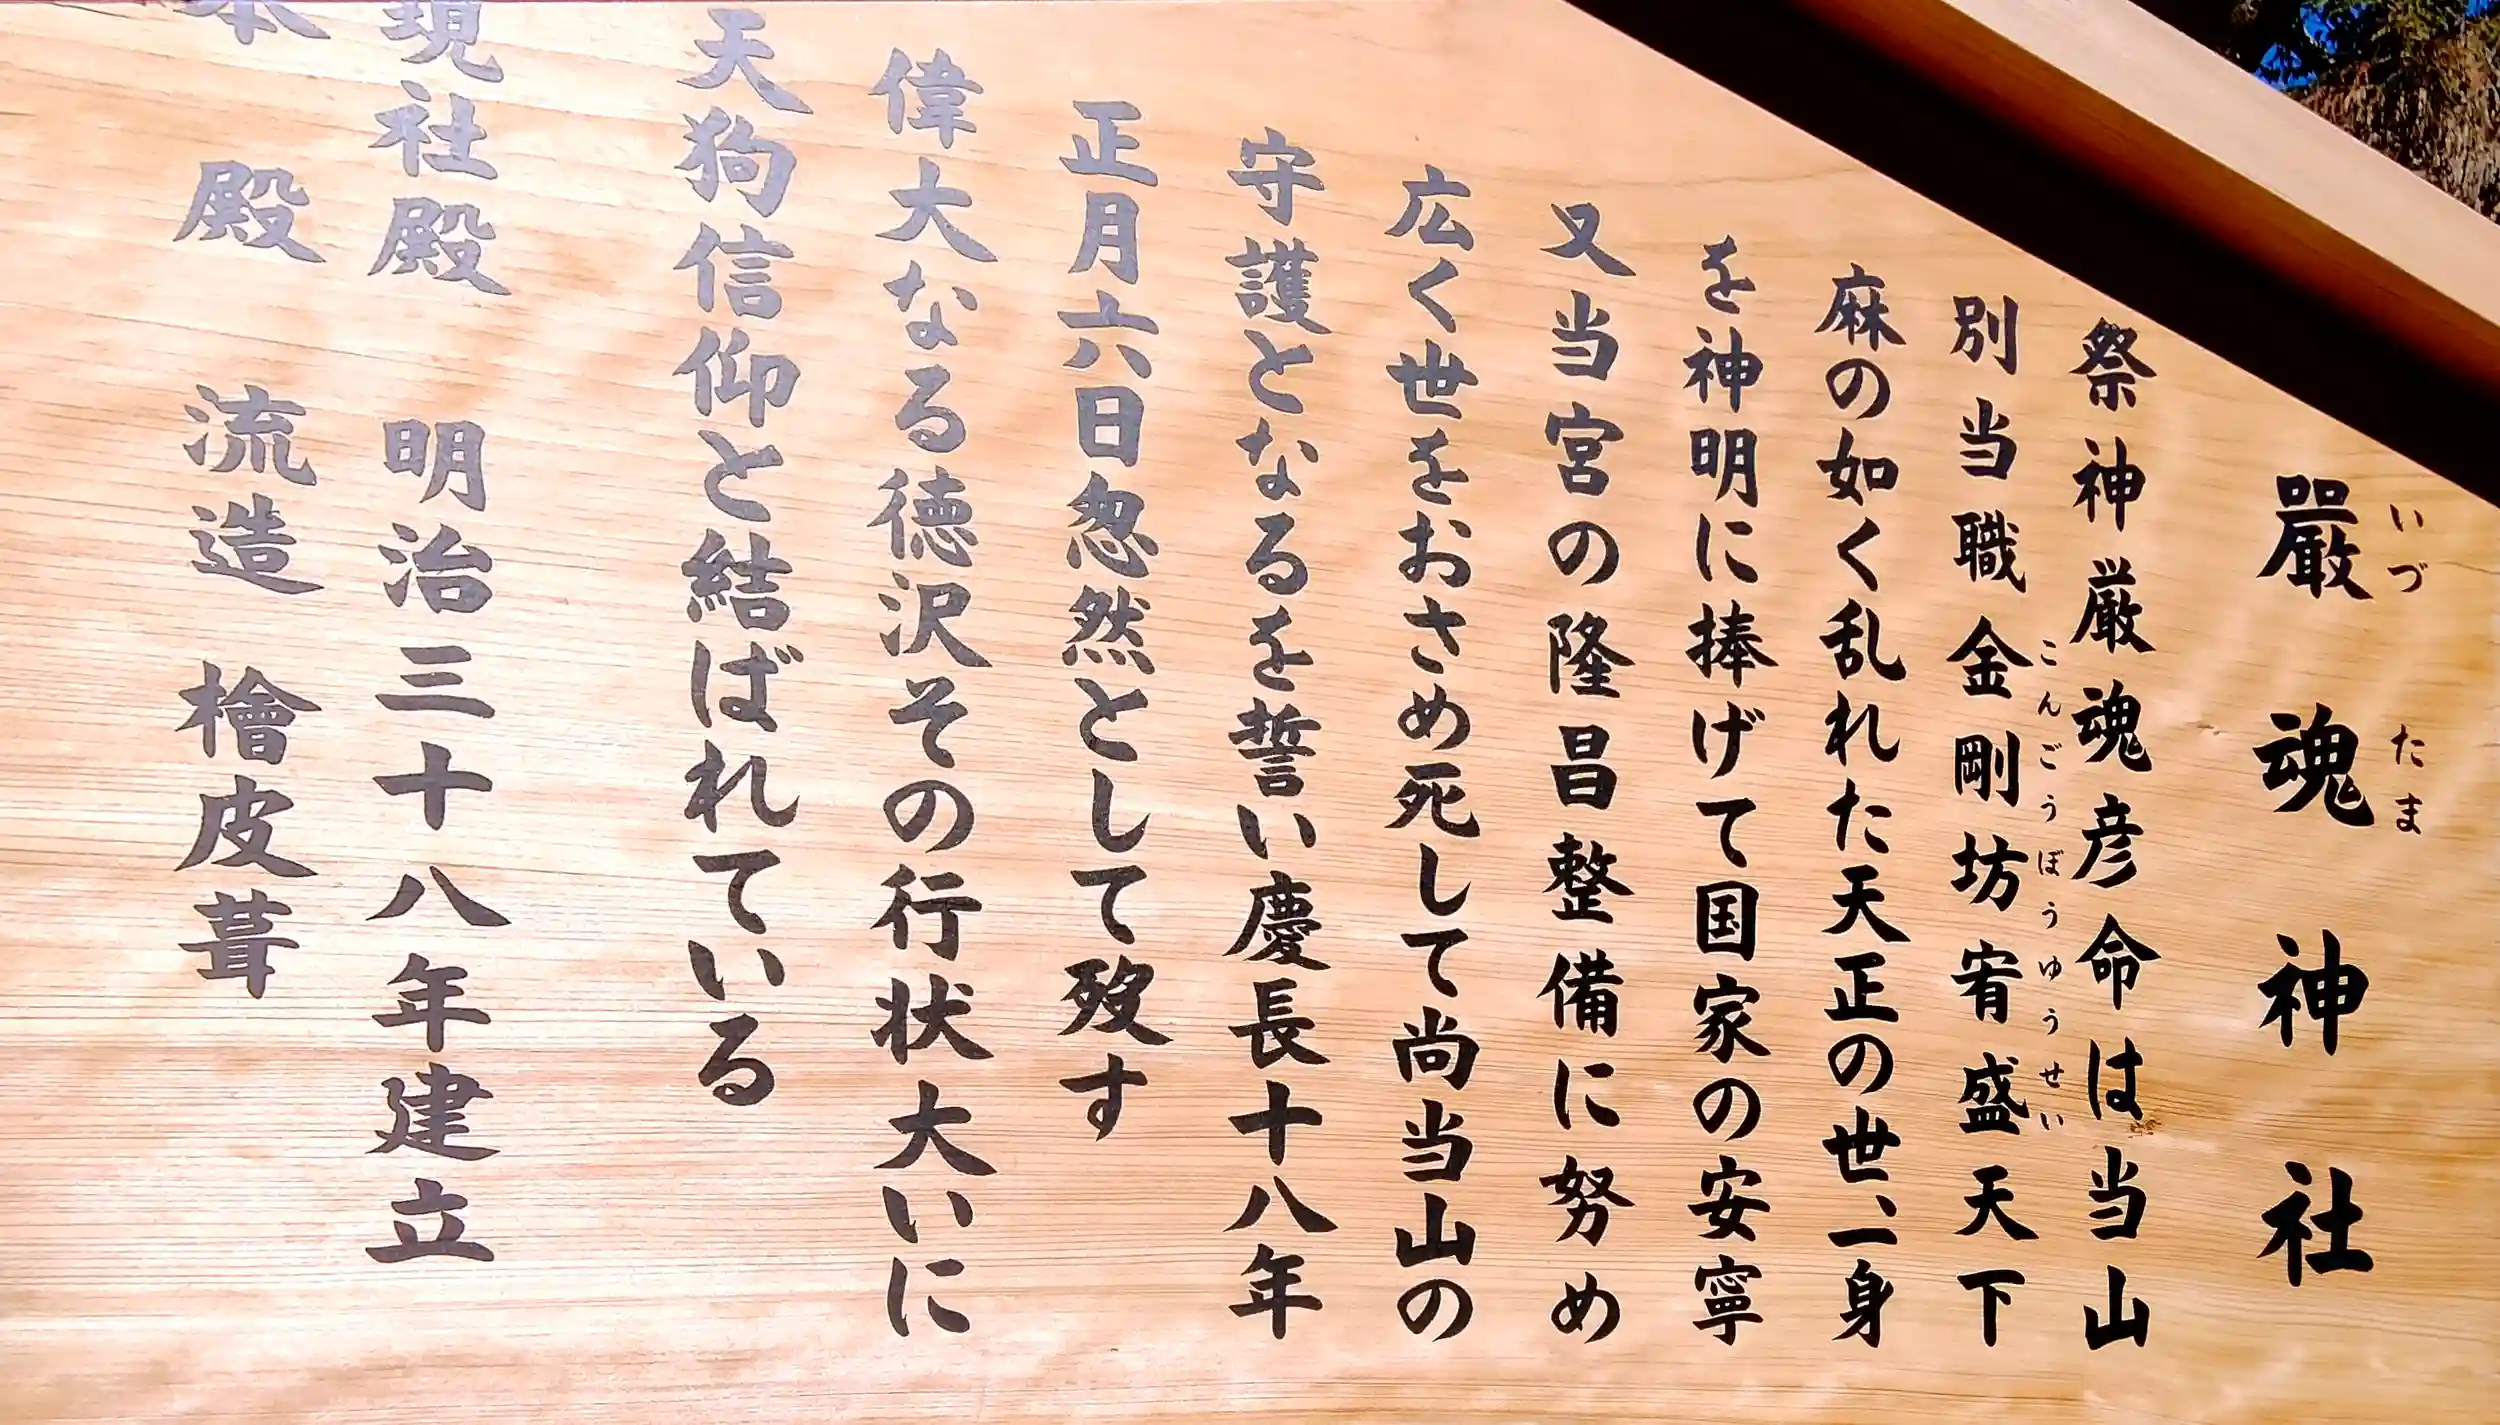 嚴魂神社
いづ たま
祭神厳魂彦命は当山
別当職金剛坊宥盛天下
こんごうぼうゆうせい
麻の如く乱れた天正の世、一身
を神明に捧げて国家の安寧
又当宮の隆昌整備に努め
広く世をおさめ死して尚当山の
守護となるを誓い慶長十八年
正月六日忽然として歿す
偉大なる徳沢その行状大いに
天狗信仰と結ばれている
現社殿 明治三十八年建立
本殿 流造 檜皮葺